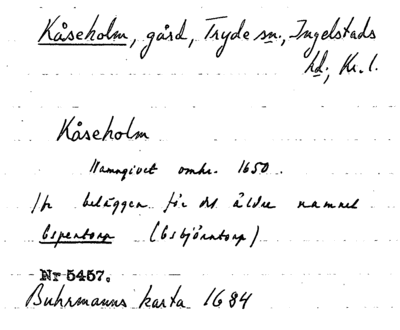 Kåseholm, gård, Tryde sn., Ingelstads
hd., Kr. l.
Kåseholm
Namngivet omkr. 1650.
belägger för det äldre namnet
Espentorp (Esbjörntorp)
Nr 5457.
Buhrmanns karta 1684